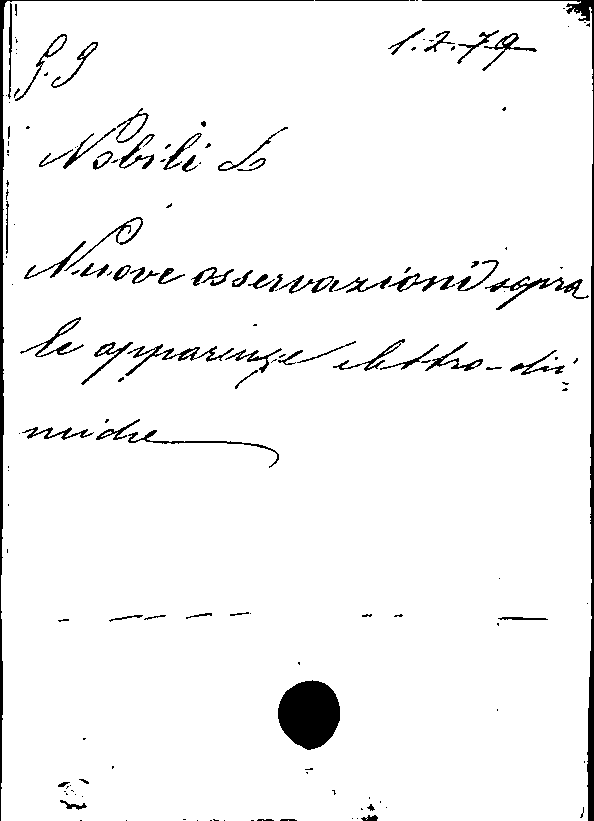 G. G 1.2.79
Nobili L
Nuove osservazioni sopra
le apparenze elettro-chi=
miche